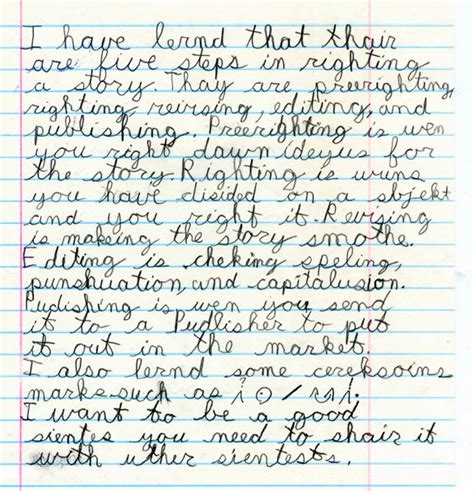 I have lernd that thair
are five steps in righting
a story. Thay are preerighting,
righting, reirsing, editing, and
publishing. Preerighting is wen
you right dawn ideyus for
the story. Righting is wuns
you have disided on a sbjekt
and you right it. Revising
is makeing the story smothe.
Editing is cheking speling,
punshuation, and capitalusion.
Pudishing is wen you send
it to a Pudlisher to put
it out in the market.
I also lernd some cereksoins
marks such as
I want to be a good
sientes you need to shair it
with uther sientests.